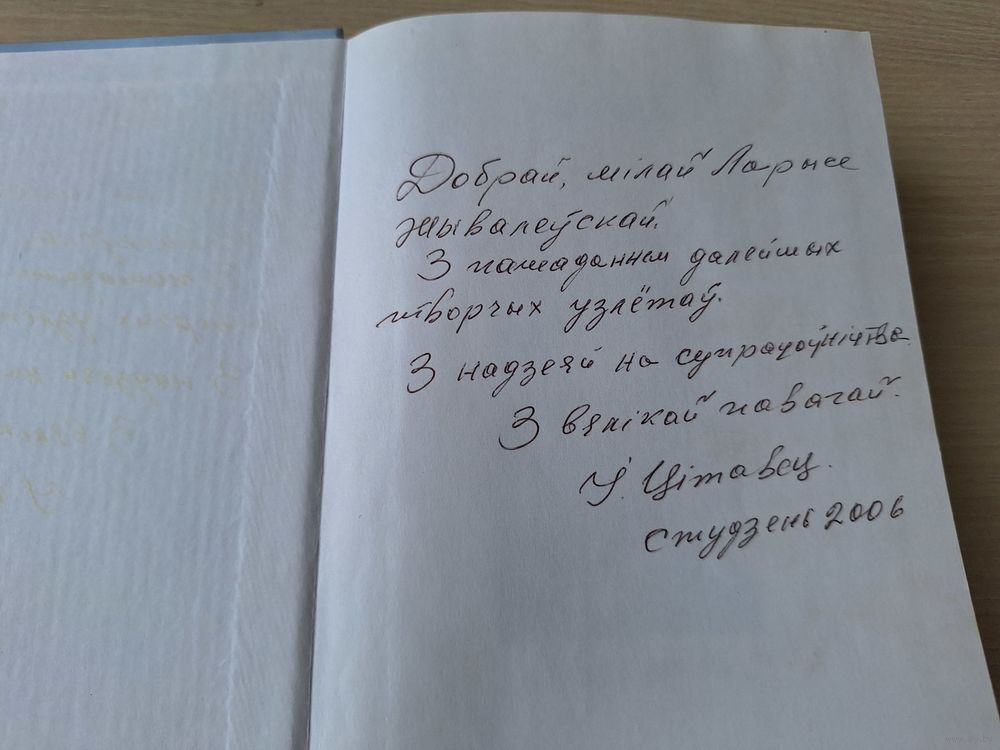 Добрай, мілай Ларысе
Жывалеўскай.
З пажаданнем далейшых
творчых узлётаў.
З надзеяй на супрацоўніцтва.
З вялікай павагай.
У. Цітавец.
студзень 2006